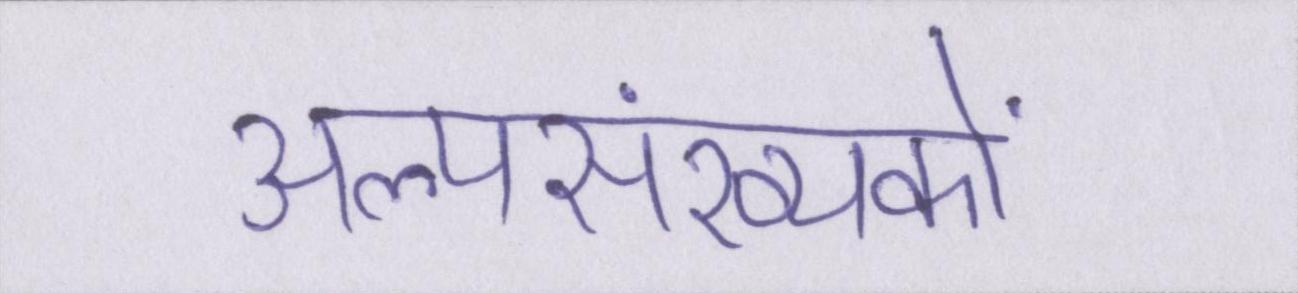 अल्पसंख्यकों